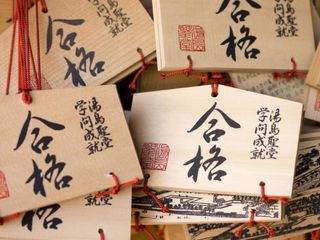 合格
湯島聖堂
学問成就
合格
湯島聖堂
学問成就
合格
湯島聖堂
学問成就
合格
湯島聖堂
学問成就
合格